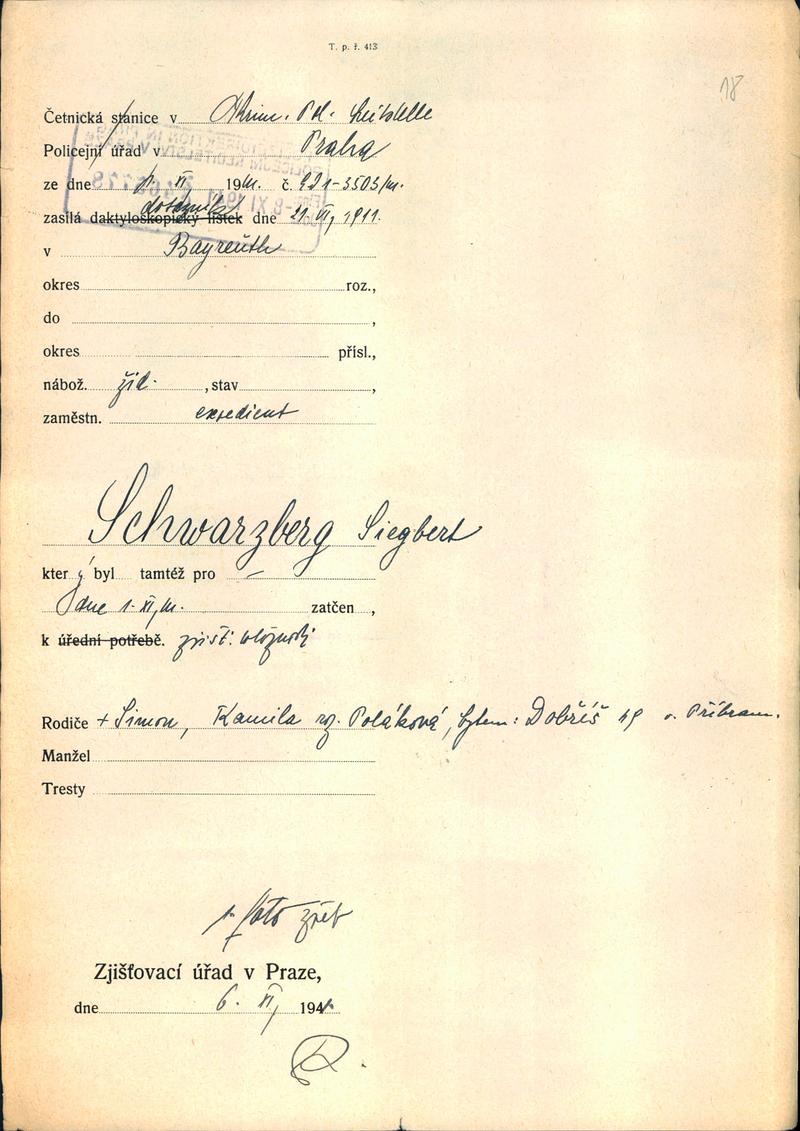 T. p. ř. 413
18
Četnická stanice v Krim. Pol. Leitstelle
Policejní úřad v Praha
ze dne XI. 1941. č.
zasílá daktyloskopický lístek dne 21. VI. 1911.
v Bayreuth
okres roz.,
do ,
okres přísl.,
nábož. žid. , stav ,
zaměstn. expedient
Schwarzberg Siegbert
který byl tamtéž pro —
dne 1. XI. 41. zatčen ,
k úřední potřebě. zjišť. totožnosti
Rodiče + Simon, Kamila roz. Poláková, bytem: Dobříš 49 o. Příbram.
Manžel
Tresty
1 foto zpět
Zjišťovací úřad v Praze,
dne 6. XI. 1941.